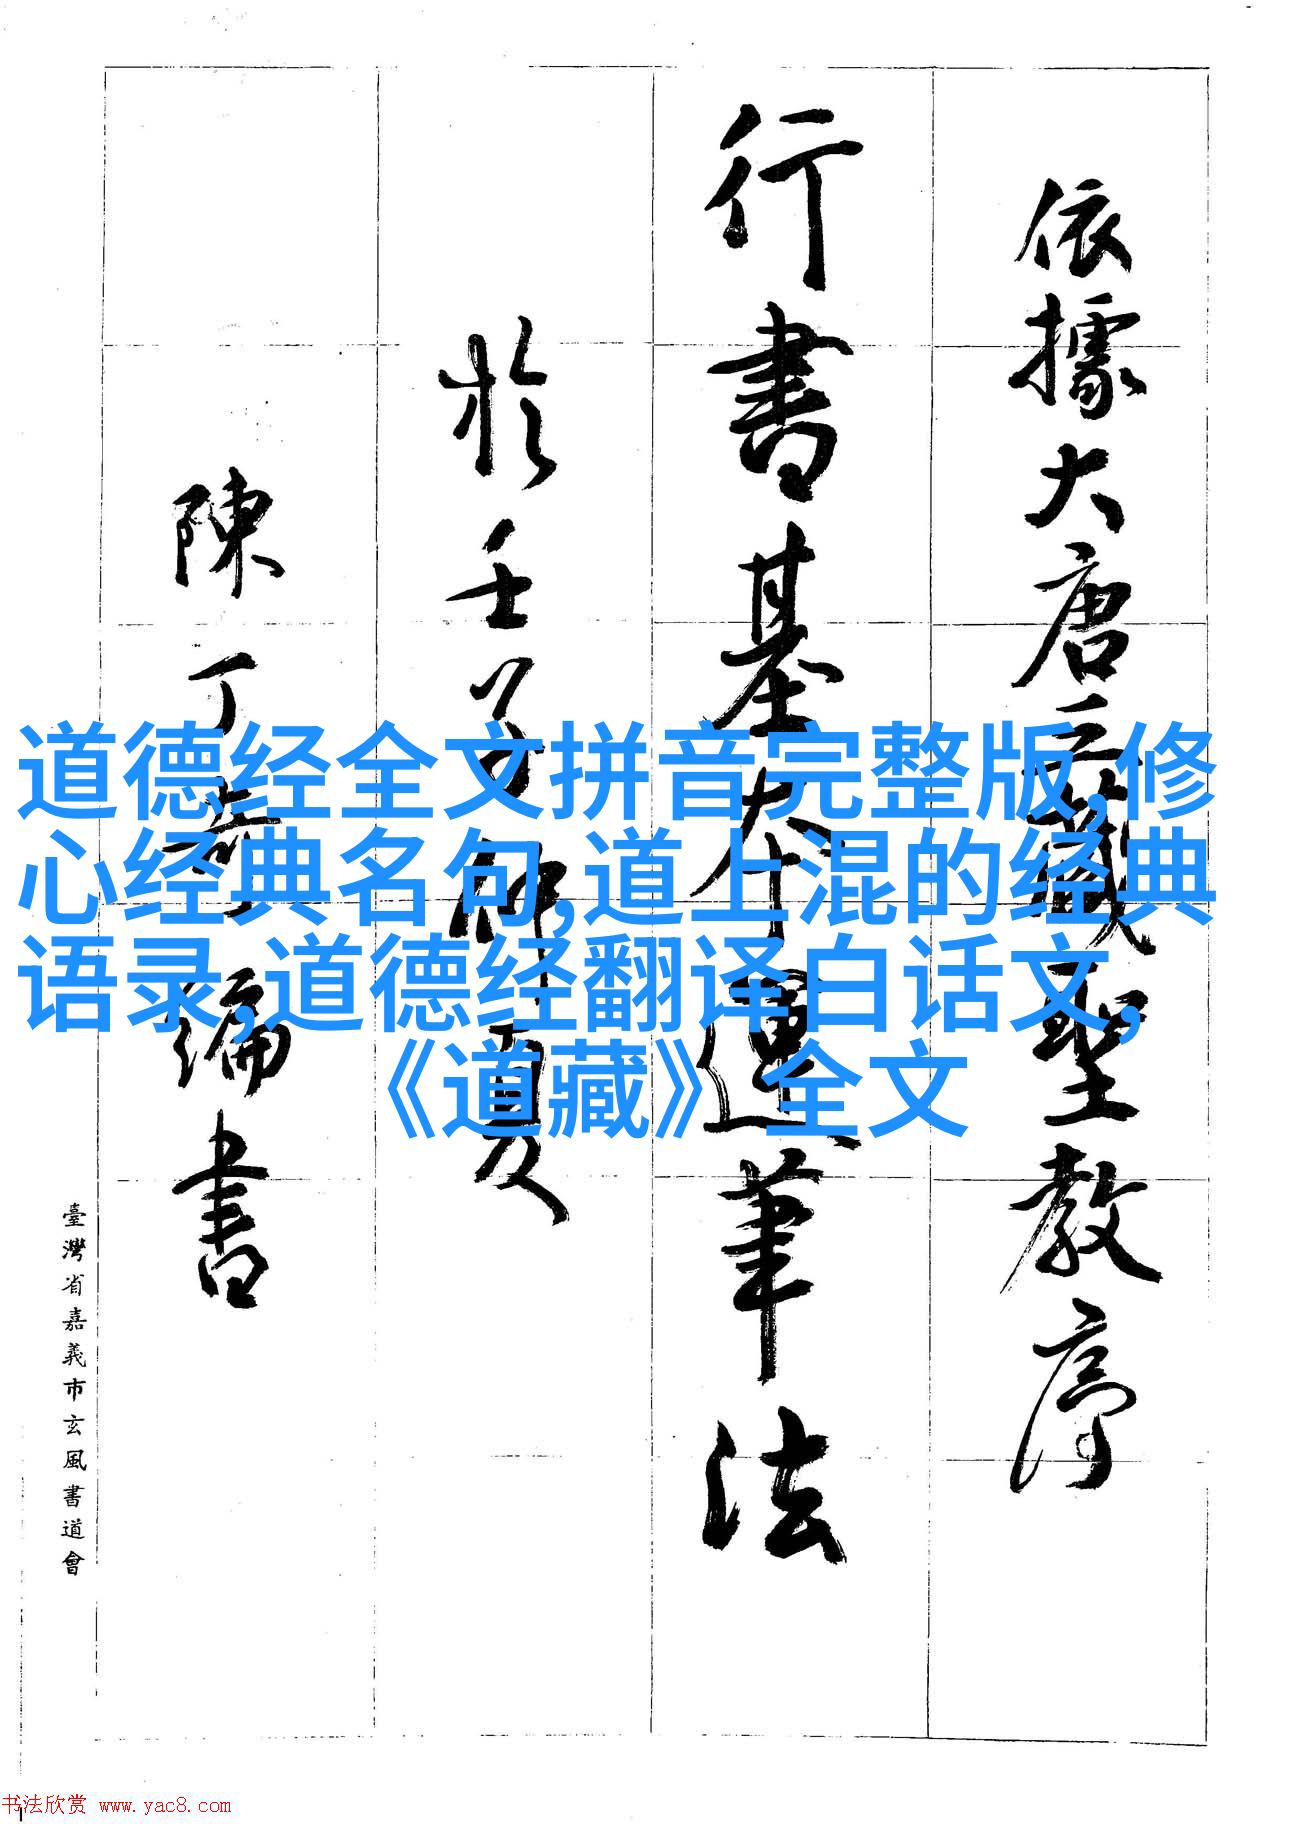 依據大唐三藏聖教序
行書基本運筆法
於壬子仲夏
陳丁奇編書
臺灣省嘉義市玄風書道會
道德经全文拼音完整版,修
心经典名句,道上混的经典
语录,道德经翻译白话文,
《道藏》全文
书法欣赏 www.yac8.com
1